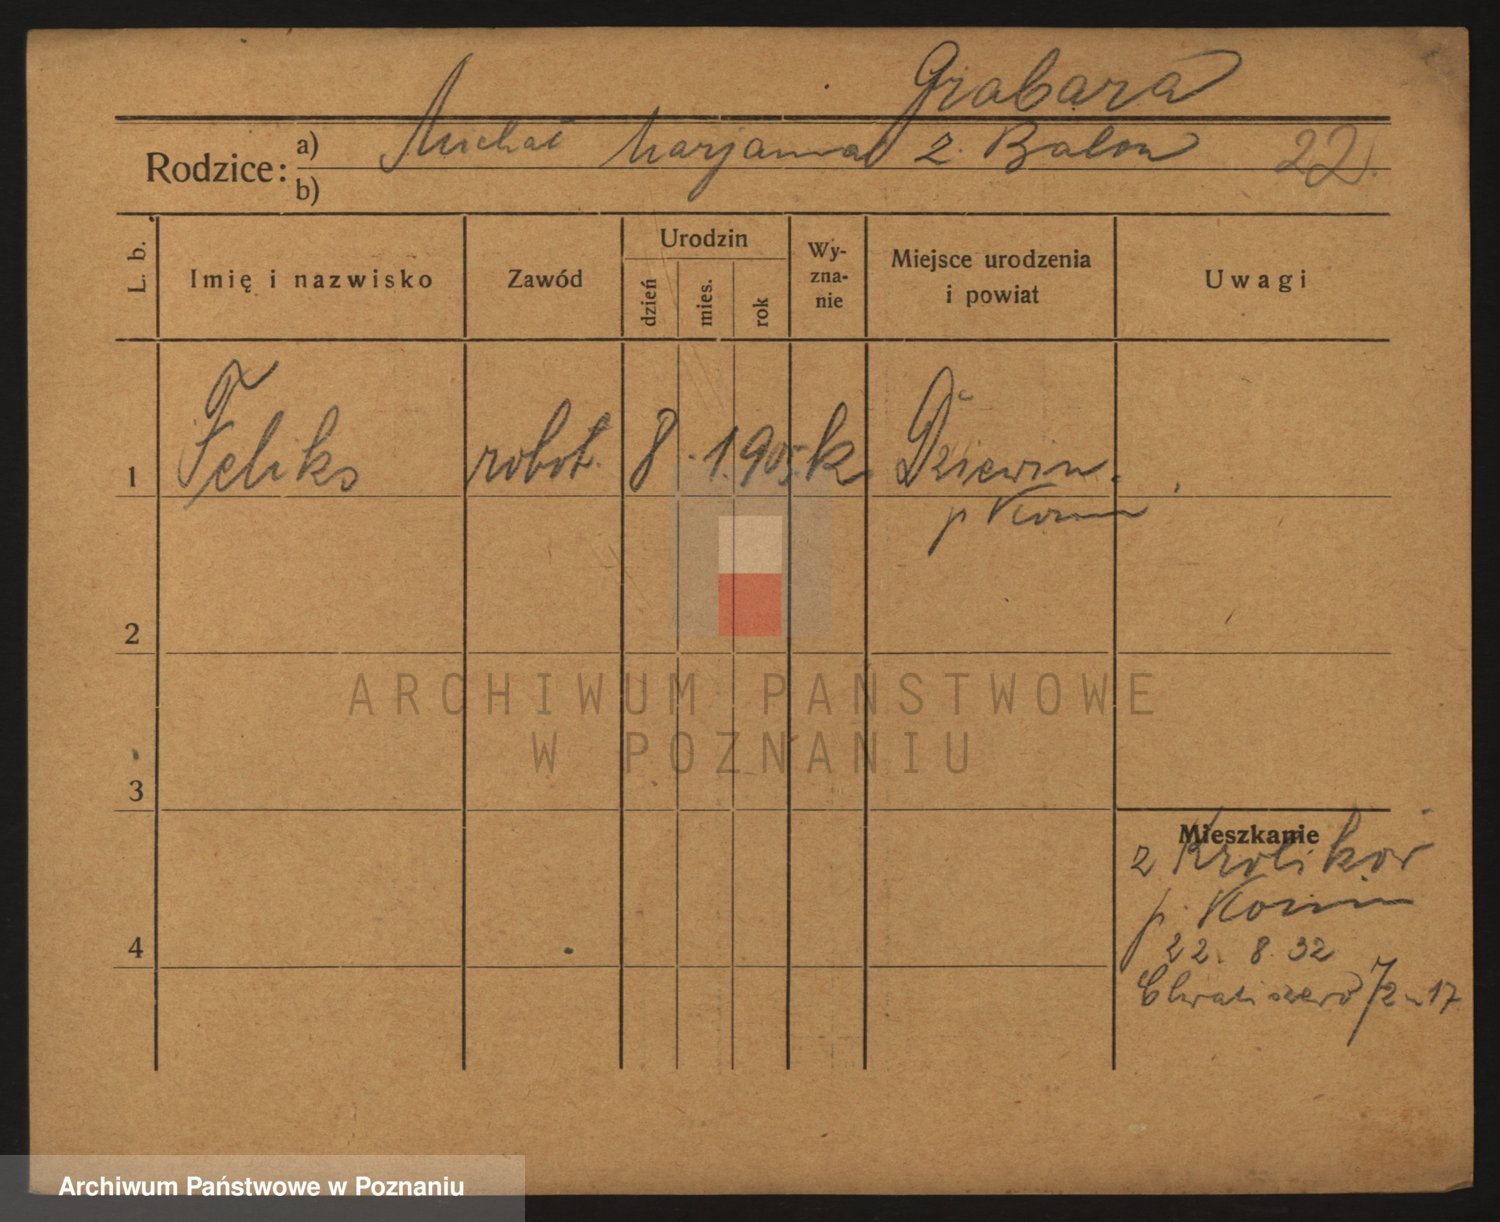 Grabara
Rodzice: a) Michał Marjanna z. Balon 22.
b)
L. b.
Imię i nazwisko
Zawód
Urodzin
dzień
mies.
rok
Wy-
zna-
nie
Miejsce urodzenia
i powiat
Uwagi
1 Feliks robot. 8. 1. 905. k. Dziewin.
p
2
ARCHIWUM PAŃSTWOWE
W POZNANIU
3
Mieszkanie
z Królików
p.
4
22. 8. 32
Chwaliszewo 72 m 17
Archiwum Państwowe w Poznaniu